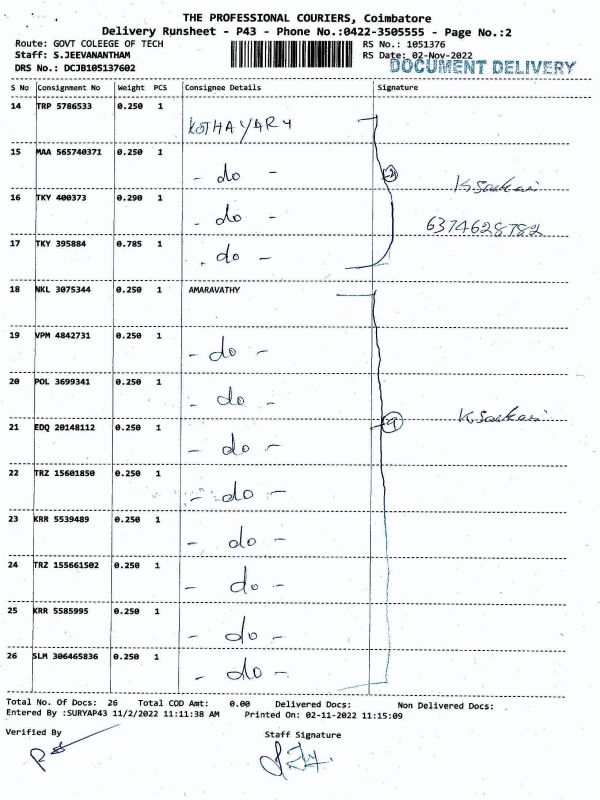 THE PROFESSIONAL COURIERS, Coimbatore
Delivery Runsheet - P43 - Phone No.:0422-3505555 - Page No.:2
Route: GOVT COLEEGE OF TECH RS No.: 1051376
Staff: S.JEEVANANTHAM RS Date: 02-Nov-2022
DRS No.: DCJB105137602 DOCUMENT DELIVERY
S No Consignment No Weight PCS Consignee Details Signature
14 TRP 5786533 0.250 1 KOTHAYARY
15 MAA 565740371 0.250 1 - do -
16 TKY 400373 0.290 1 - do - 6374628782
17 TKY 395884 0.785 1 - do -
18 NKL 3075344 0.250 1 AMARAVATHY
19 VPM 4842731 0.250 1 - do -
20 POL 3699341 0.250 1 - do -
21 EDQ 20148112 0.250 1 - do - 9
22 TRZ 15601850 0.250 1 - do -
23 KRR 5539489 0.250 1 - do -
24 TRZ 155661502 0.250 1 - do -
25 KRR 5585995 0.250 1 - do -
26 SLM 306465836 0.250 1 - do -
Total No. Of Docs: 26 Total COD Amt: 0.00 Delivered Docs: Non Delivered Docs:
Entered By :SURYAP43 11/2/2022 11:11:38 AM Printed On: 02-11-2022 11:15:09
Verified By Staff Signature